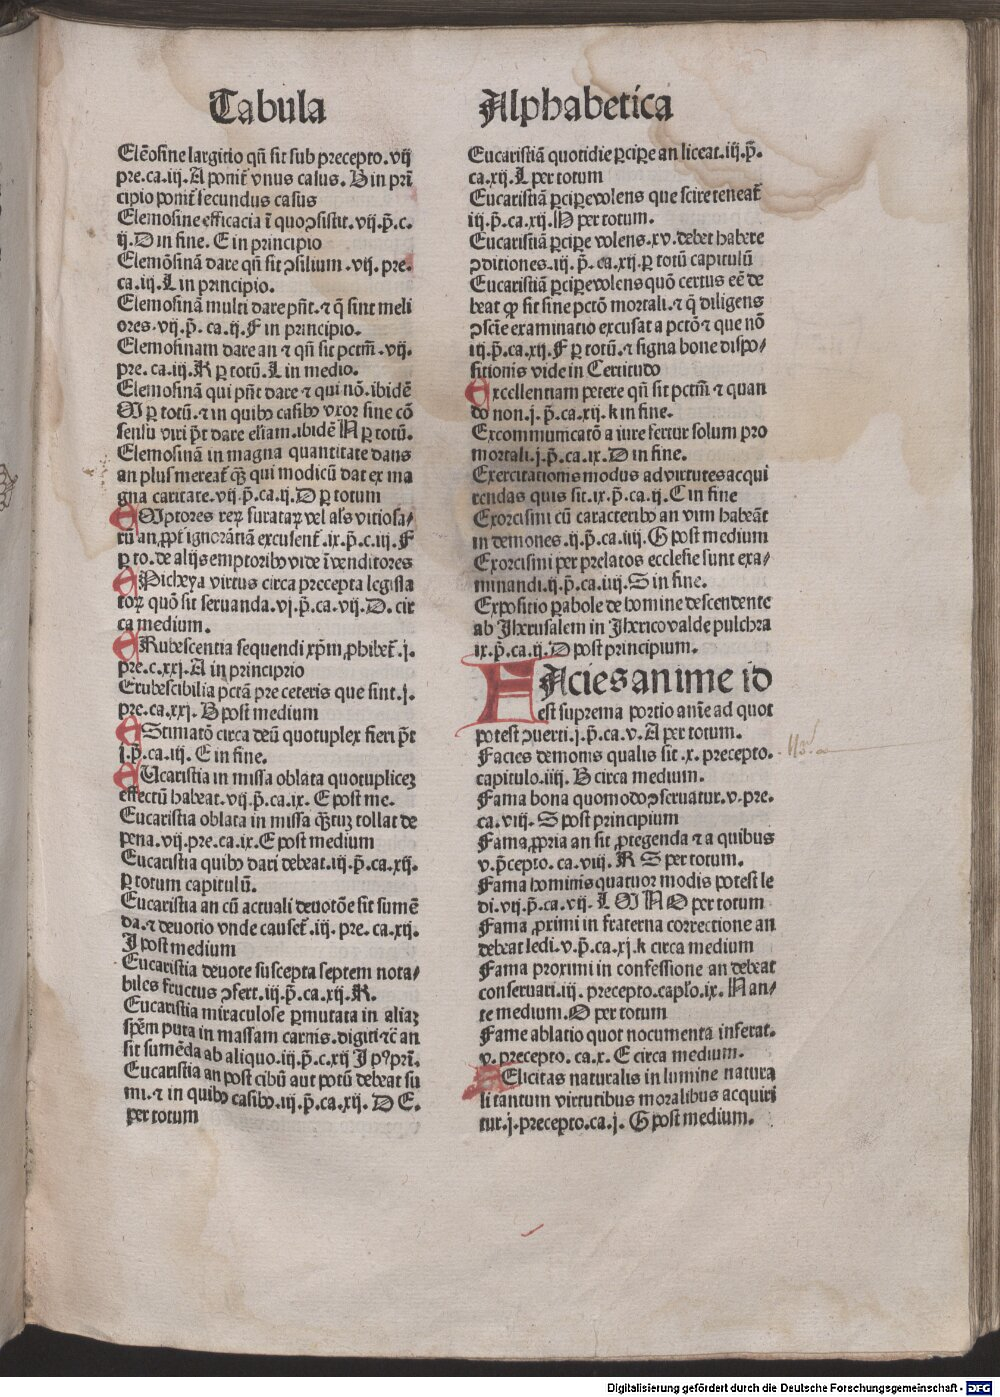 Tabula Alphabetica
Elēosine largitio qñ sit sub precepto. vij
pre. ca. iij. A ponit̄ vnus casus. B in prī
cipio ponit̄ secundus casus
Elemosine efficacia ī quo ɔsistit. vij. p̄. c.
ij. D in fine. E in principio
Elemōsinā dare qñ sit ɔsilium. vij. pre.
ca. iij. L in principio.
Elemosinā multi dare pn̄t. ⁊ q̄ sint meli
ores. vij. p̄. ca. ij. F in principio.
Elemosinam dare an ⁊ qñ sit pctm̄. vij.
pre. ca. iij. K ꝑ totū. L in medio.
Elemosinā qui pn̄t dare ⁊ qui nō. ibidē
M ꝑ totū. ⁊ in quibꝰ casibꝰ vxor sine cō
sensu viri pt̄ dare etiam. ibidē N ꝑ totū.
Elemosinā in magna quantitate dans
an plus mereat̄ q̄ꝫ qui modicū dat ex ma
gna caritate. vij. p̄. ca. ij. D ꝑ totum
EMptores reꝝ furataꝝ vel als vitiosa/
rū an ꝓpt̄ ignorātiā excusent̄. ix. p̄. c. iij. F
ꝑ to. de alijs emptoribꝰ vide ī venditores
EPicheya virtus circa precepta legisla
toꝝ quō sit seruanda. vj. p̄. ca. vij. D. cir
ca medium.
ERubescentia sequendi xp̄m ꝓhibet̄. j.
pre. c. xxj. A in principrio
Erubescibilia pctā pre ceteris que sint. j.
pre. ca. xxj. B post medium
EStimatō circa deū quotuplex fieri pt̄
j. p̄. ca. iij. E in fine.
EUcaristia in missa oblata quotuplicez
effectū habeat. vij. p̄. ca. ix. E post me.
Eucaristia oblata in missa q̄ꝫtuꝫ tollat de
pena. vij. pre. ca. ix. E post medium
Eucaristia quibꝰ dari debeat. iij. p̄. ca. xij.
ꝑ totum capitulū.
Eucaristia an cū actuali deuotōe sit sumē
da. ⁊ deuotio vnde causet̄. iij. pre. ca. xij.
I post medium
Eucaristia deuote suscepta septem nota/
biles fructus ɔfert. iij. p̄. ca. xij. K.
Eucaristia miraculose ꝑmutata in aliaꝫ
spēm puta in massam carnis. digiti ⁊c̄ an
sit sumēda ab aliquo. iij. p̄. c. xij I pꝰ prī.
Eucaristiā an post cibū aut potū debeat su
mi. ⁊ in quibꝰ casibꝰ. iij. p̄. ca. xij. D E.
per totum
Eucaristiā quotidie ꝑcipe an liceat. iij. p̄.
ca. xij. L per totum
Eucaristiā ꝑcipe volens que scire teneat̄
iij. p̄. ca. xij. N per totum.
Eucaristiā ꝑcipe volens. xv. debet habere
ɔditiones. iij. p̄. ca. xij. ꝑ totū capitulū
Eucaristiā ꝑcipe volens quō certus eē de
beat ꝙ sit sine pctō mortali. ⁊ q̄ diligens
ɔsciē examinatio excusat a pctō ⁊ que nō
iij. p̄. ca. xij. F ꝑ totū. ⁊ signa bone dispo/
sitionis vide in Certitudo
Excellentiam petere qñ sit pctm̄ ⁊ quan
do non. j. p̄. ca. xij. k in fine.
Excommunicatō a iure fertur solum pro
mortali. j. p̄. ca. ix. D in fine.
Exercitationis modus ad virtutes acqui
rendas quis sit. ix. p̄. ca. ij. C in fine
Exorcismi cū caracteribꝰ an vim habeāt
in demones. ij. p̄. ca. iiij. G post medium
Exorcismi per prelatos ecclesie sunt exa/
minandi. ij. p̄. ca. iiij. S in fine.
Expositio ꝑabole de homine descendente
ab Jherusalem in Jherico valde pulchra
ix. p̄. ca. ij. D post principium.
FAcies anime id
est suprema portio anīe ad quot
potest ɔuerti. j. p̄. ca. v. A per totum.
Facies demonis qualis sit. x. precepto.
capitulo. iiij. B circa medium.
Fama bona quomodo ɔseruatur. v. pre.
ca. viij. S post principium
Fama ꝓpria an sit ꝓtegenda ⁊ a quibus
v. p̄cepto. ca. viij. R S per totum.
Fama hominis quatuor modis potest le
di. vij. p̄. ca. vij. L M N O per totum
Fama ꝓximi in fraterna correctione an
debeat ledi. v. p̄. ca. xj. k circa medium
Fama proximi in confessione an debeat
conseruari. iij. precepto. caplo. ix. N an-
te medium. O per totum
Fame ablatio quot nocumenta inferat.
v. precepto. ca. x. E circa medium.
FElicitas naturalis in lumine natura
li tantum virtutibus moralibus acquiri
tur. j. precepto. ca. j. G post medium.
Digitalisierung gefördert durch die Deutsche Forschungsgemeinschaft - DFG